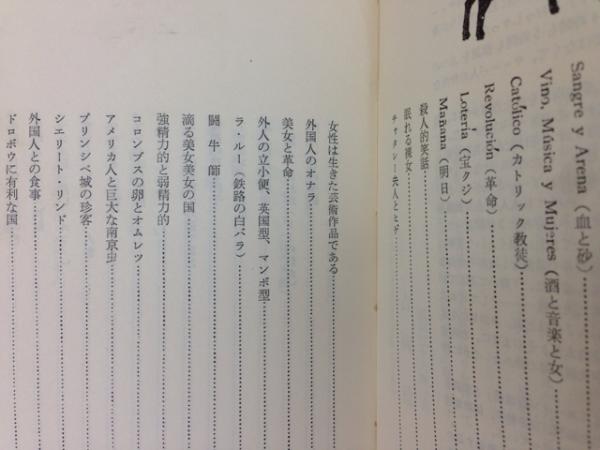 Sangre y Arena（血と砂）
Vino, Música y Mujeres（酒と音楽と女）
Católico（カトリック教徒）
Revolución（革命）
Lotería（宝クジ）
Mañana（明日）
殺人的笑話
眠れる裸女
チャタレー夫人と
女性は生きた芸術作品である
外国人のオナラ
美女と革命
外人の立小便、英国型、マンボ型
ラ・ルー（鉄路の白バラ）
闘牛師
滴る美女美女の国
強精力的と弱精力的
コロンブスの卵とオムレツ
アメリカ人と巨大な南京虫
プリンシペ城の珍客
シエリート・リンド
外国人との食事
ドロボウに有利な国